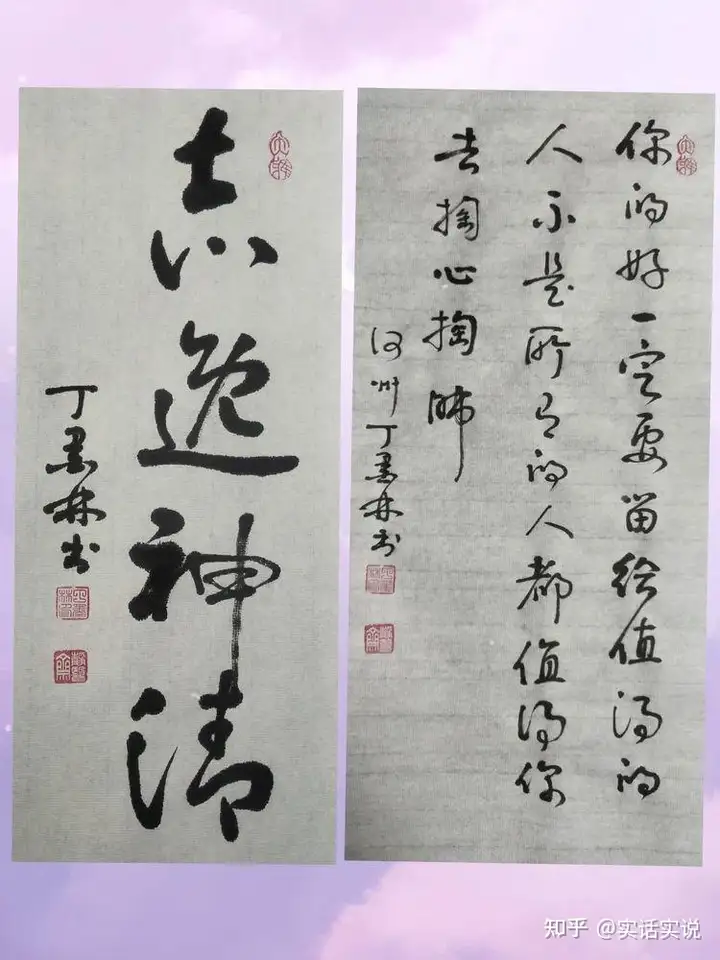 志逸神清
丁墨林书
你的好一定要留给值得的
人不是所有的人都值得你
去掏心掏肺
河州丁墨林书
知乎 @实话实说